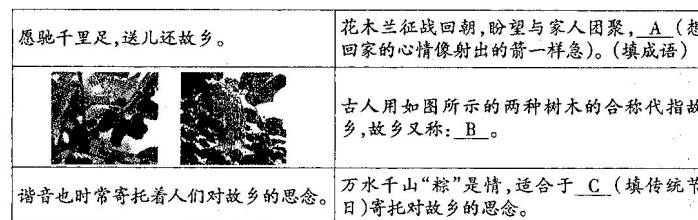 愿驰千里足,送儿还故乡。
花木兰征战回朝,盼望与家人团聚,A(想
回家的心情像射出的箭一样急)。(填成语)
古人用如图所示的两种树木的合称代指故
乡,故乡又称:B。
谐音也时常寄托着人们对故乡的思念。
万水千山“粽”是情,适合于C(填传统节
日)寄托对故乡的思念。